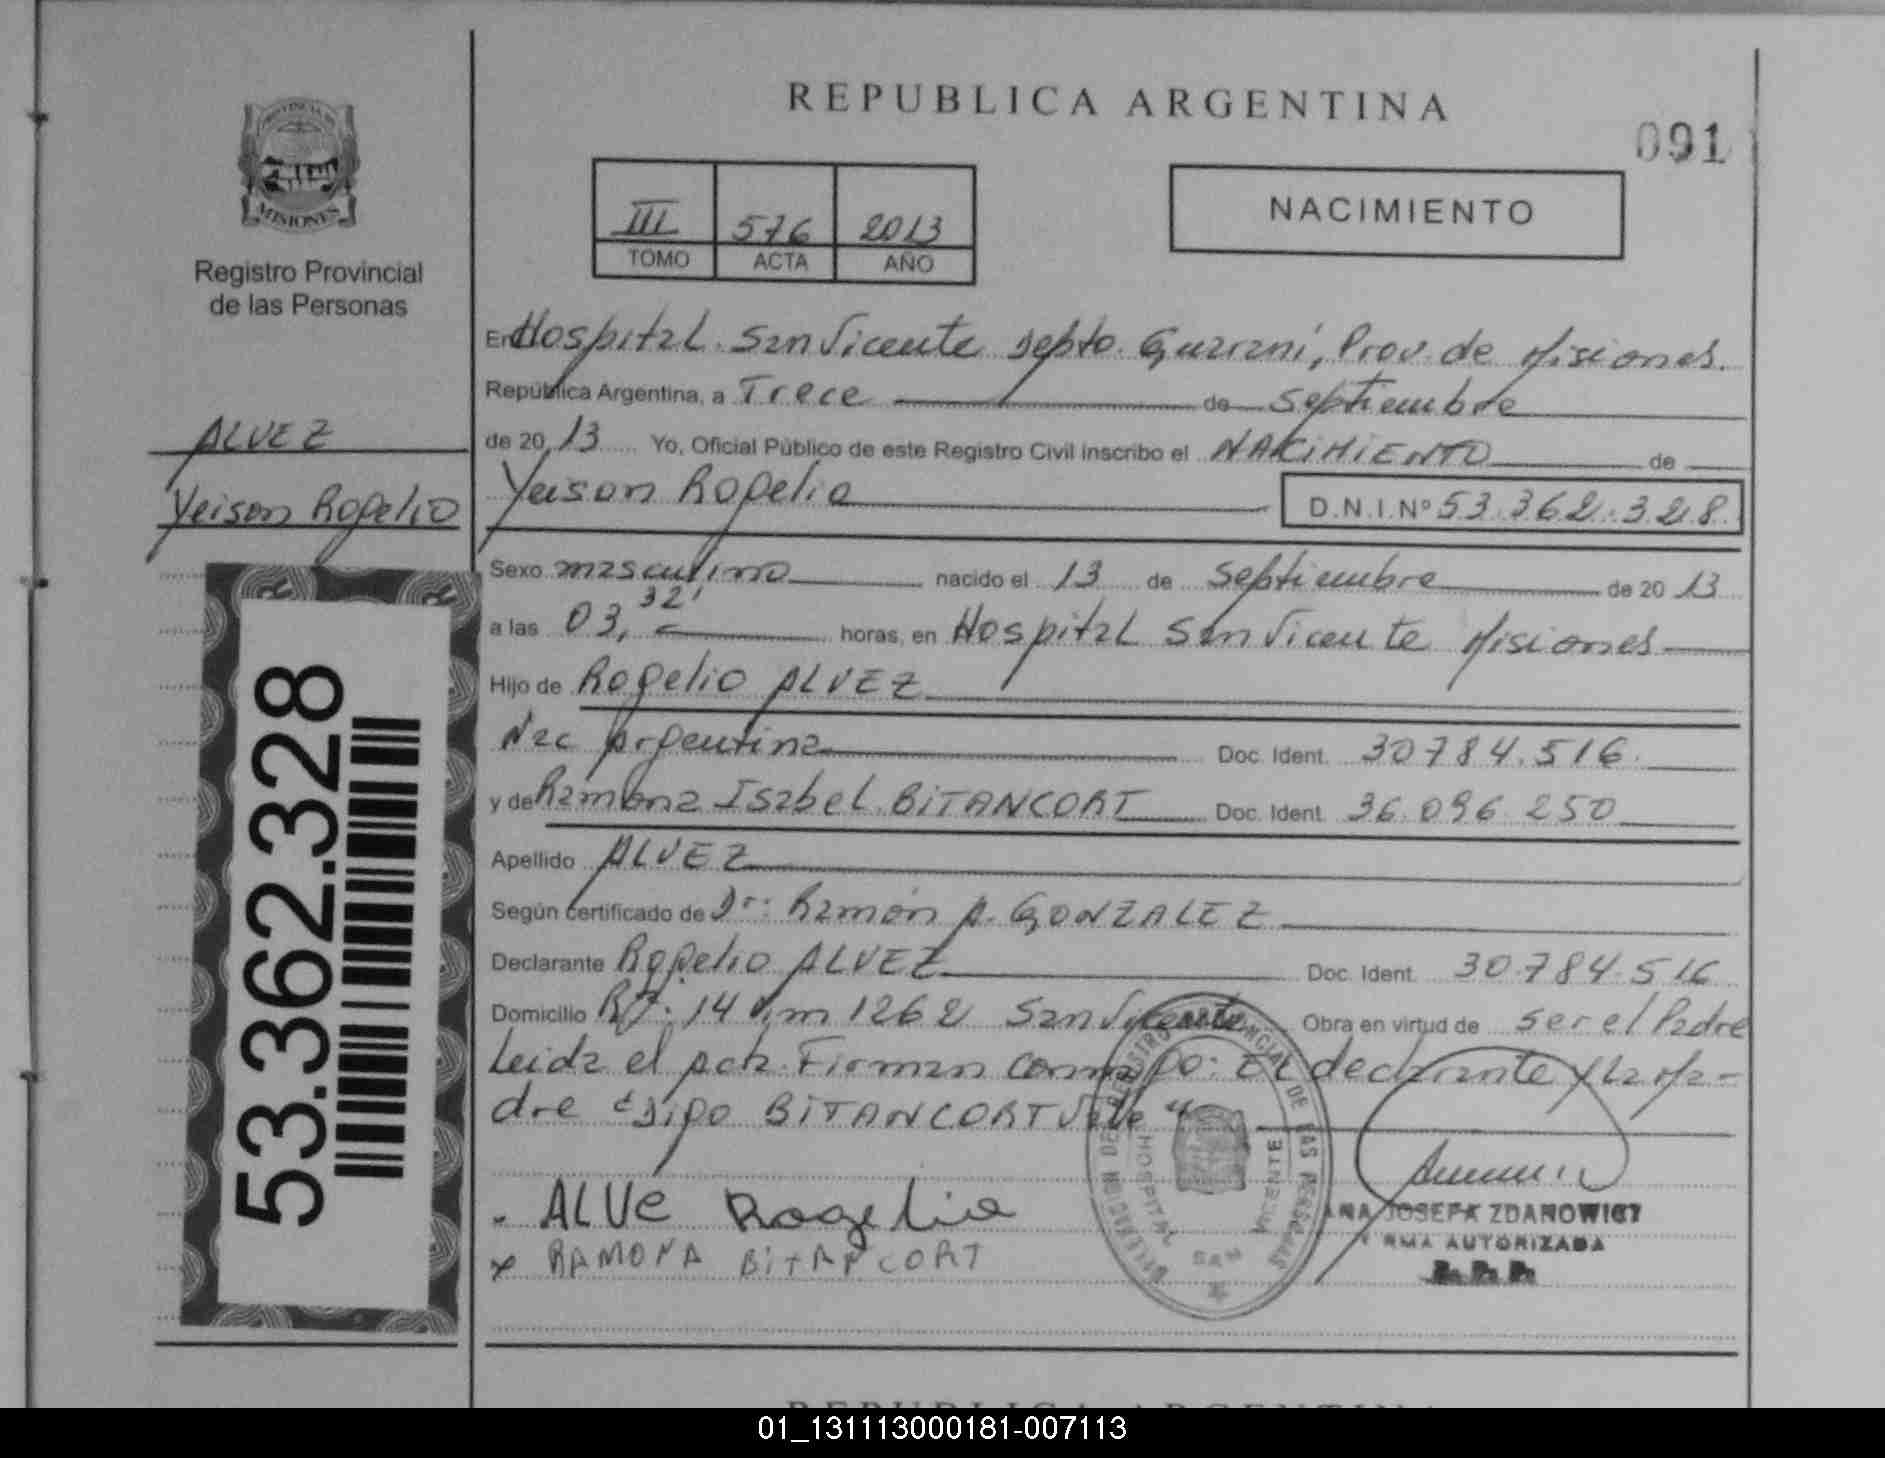 REPUBLICA ARGENTINA
091
PROVINCIA DE
MISIONES
Registro Provincial
de las Personas
III 576 2013
TOMO ACTA AÑO
NACIMIENTO
ALVEZ
Yeison Rogelio
53.362.328
En Hospital San Vicente Depto. Guarani, Prov. de Misiones.
República Argentina, a Trece de Septiembre
de 20 13 Yo, Oficial Público de este Registro Civil inscribo el NACIMIENTO de
Yeison Rogelio D.N.I.Nº 53.362.328
Sexo masculino nacido el 13 de Septiembre de 20 13
a las 03, 32' horas, en Hospital San Vicente Misiones
Hijo de Rogelio ALVEZ
Nac Argentina Doc. Ident. 30784.516.
y de Ramona Isabel BITANCORT Doc. Ident. 36.096.250
Apellido ALVEZ
Según certificado de Dr: Ramón A. GONZALEZ
Declarante Rogelio ALVEZ Doc. Ident. 30.784.516
Domicilio 14 1262 San Vicente Obra en virtud de ser el Padre
Leida el acta Firman conmigo: El declarante y la Ma-
dre "Digo BITANCORT Vale"
- ALVE Rogelio
x RAMONA BITANCORT
DELEGACION DEL REGISTRO PROVINCIAL DE LAS PERSONAS
HOSPITAL SAN VICENTE
ANA JOSEFA ZDANOWICZ
FIRMA AUTORIZADA
REPUBLICA ARGENTINA
01_131113000181-007113